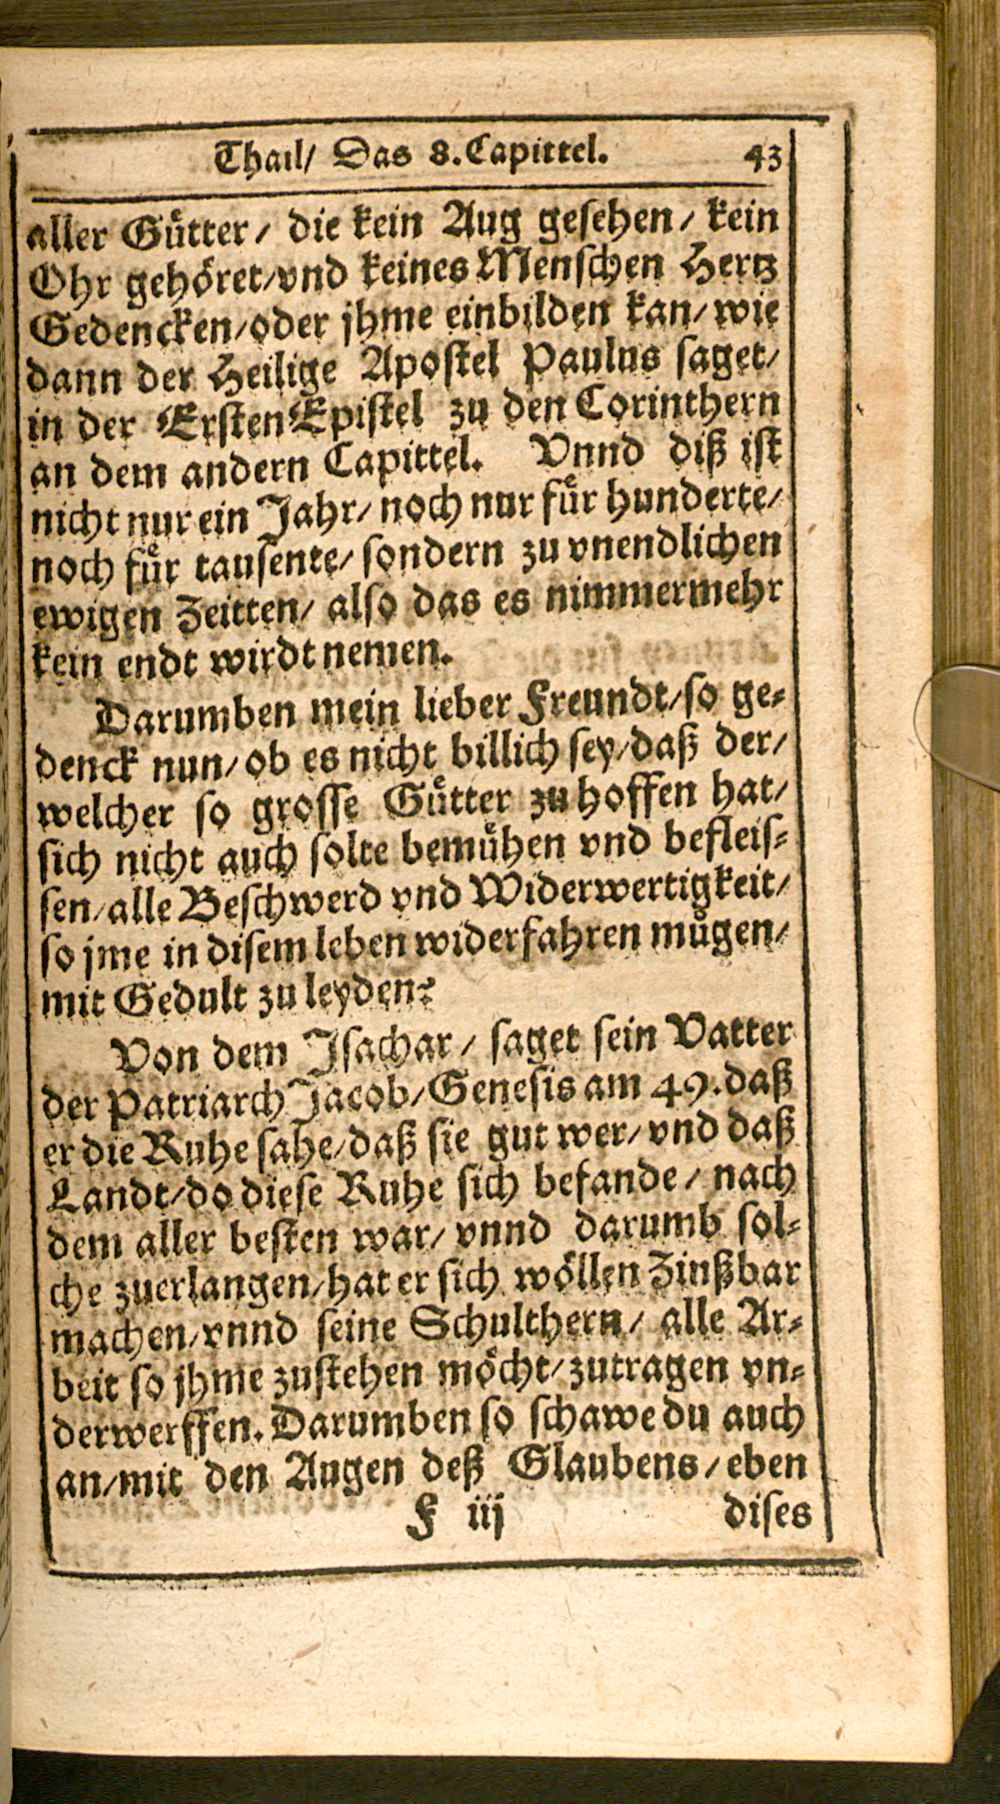 Thail/ Das 8. Capittel. 43
aller Guͤtter/ die kein Aug gesehen/ kein
Ohr gehoͤret/vnd keines Menschen Hertz
Gedencken/oder jhme einbilden kan/ wie
dann der Heilige Apostel Paulus saget/
in der Ersten Epistel zu den Corinthern
an dem andern Capittel. Vnnd diß ist
nicht nur ein Jahr/ noch nur fuͤr hunderte/
noch fuͤr tausente/ sondern zu vnendlichen
ewigen Zeitten/ also das es nimmermehr
kein endt wirdt nemen.
Darumben mein lieber Freundt/so ge-
denck nun/ ob es nicht billich sey/daß der/
welcher so grosse Guͤtter zu hoffen hat/
sich nicht auch solte bemuͤhen vnd befleis-
sen/alle Beschwerd vnd Widerwertigkeit/
so jme in disem leben widerfahren muͤgen/
mit Gedult zu leyden?
Von dem Isachar/ saget sein Vatter
der Patriarch Jacob/Genesis am 49. daß
er die Ruhe sahe/daß sie gut wer/ vnd daß
Landt/do diese Ruhe sich befande/ nach
dem aller besten war/ vnnd darumb sol-
che zuerlangen/hat er sich woͤllen Zinßbar
machen/vnnd seine Schulthern/ alle Ar-
beit so jhme zustehen moͤcht/zutragen vn-
derwerffen. Darumben so schawe du auch
an/mit den Augen deß Glaubens/eben
F iij dises